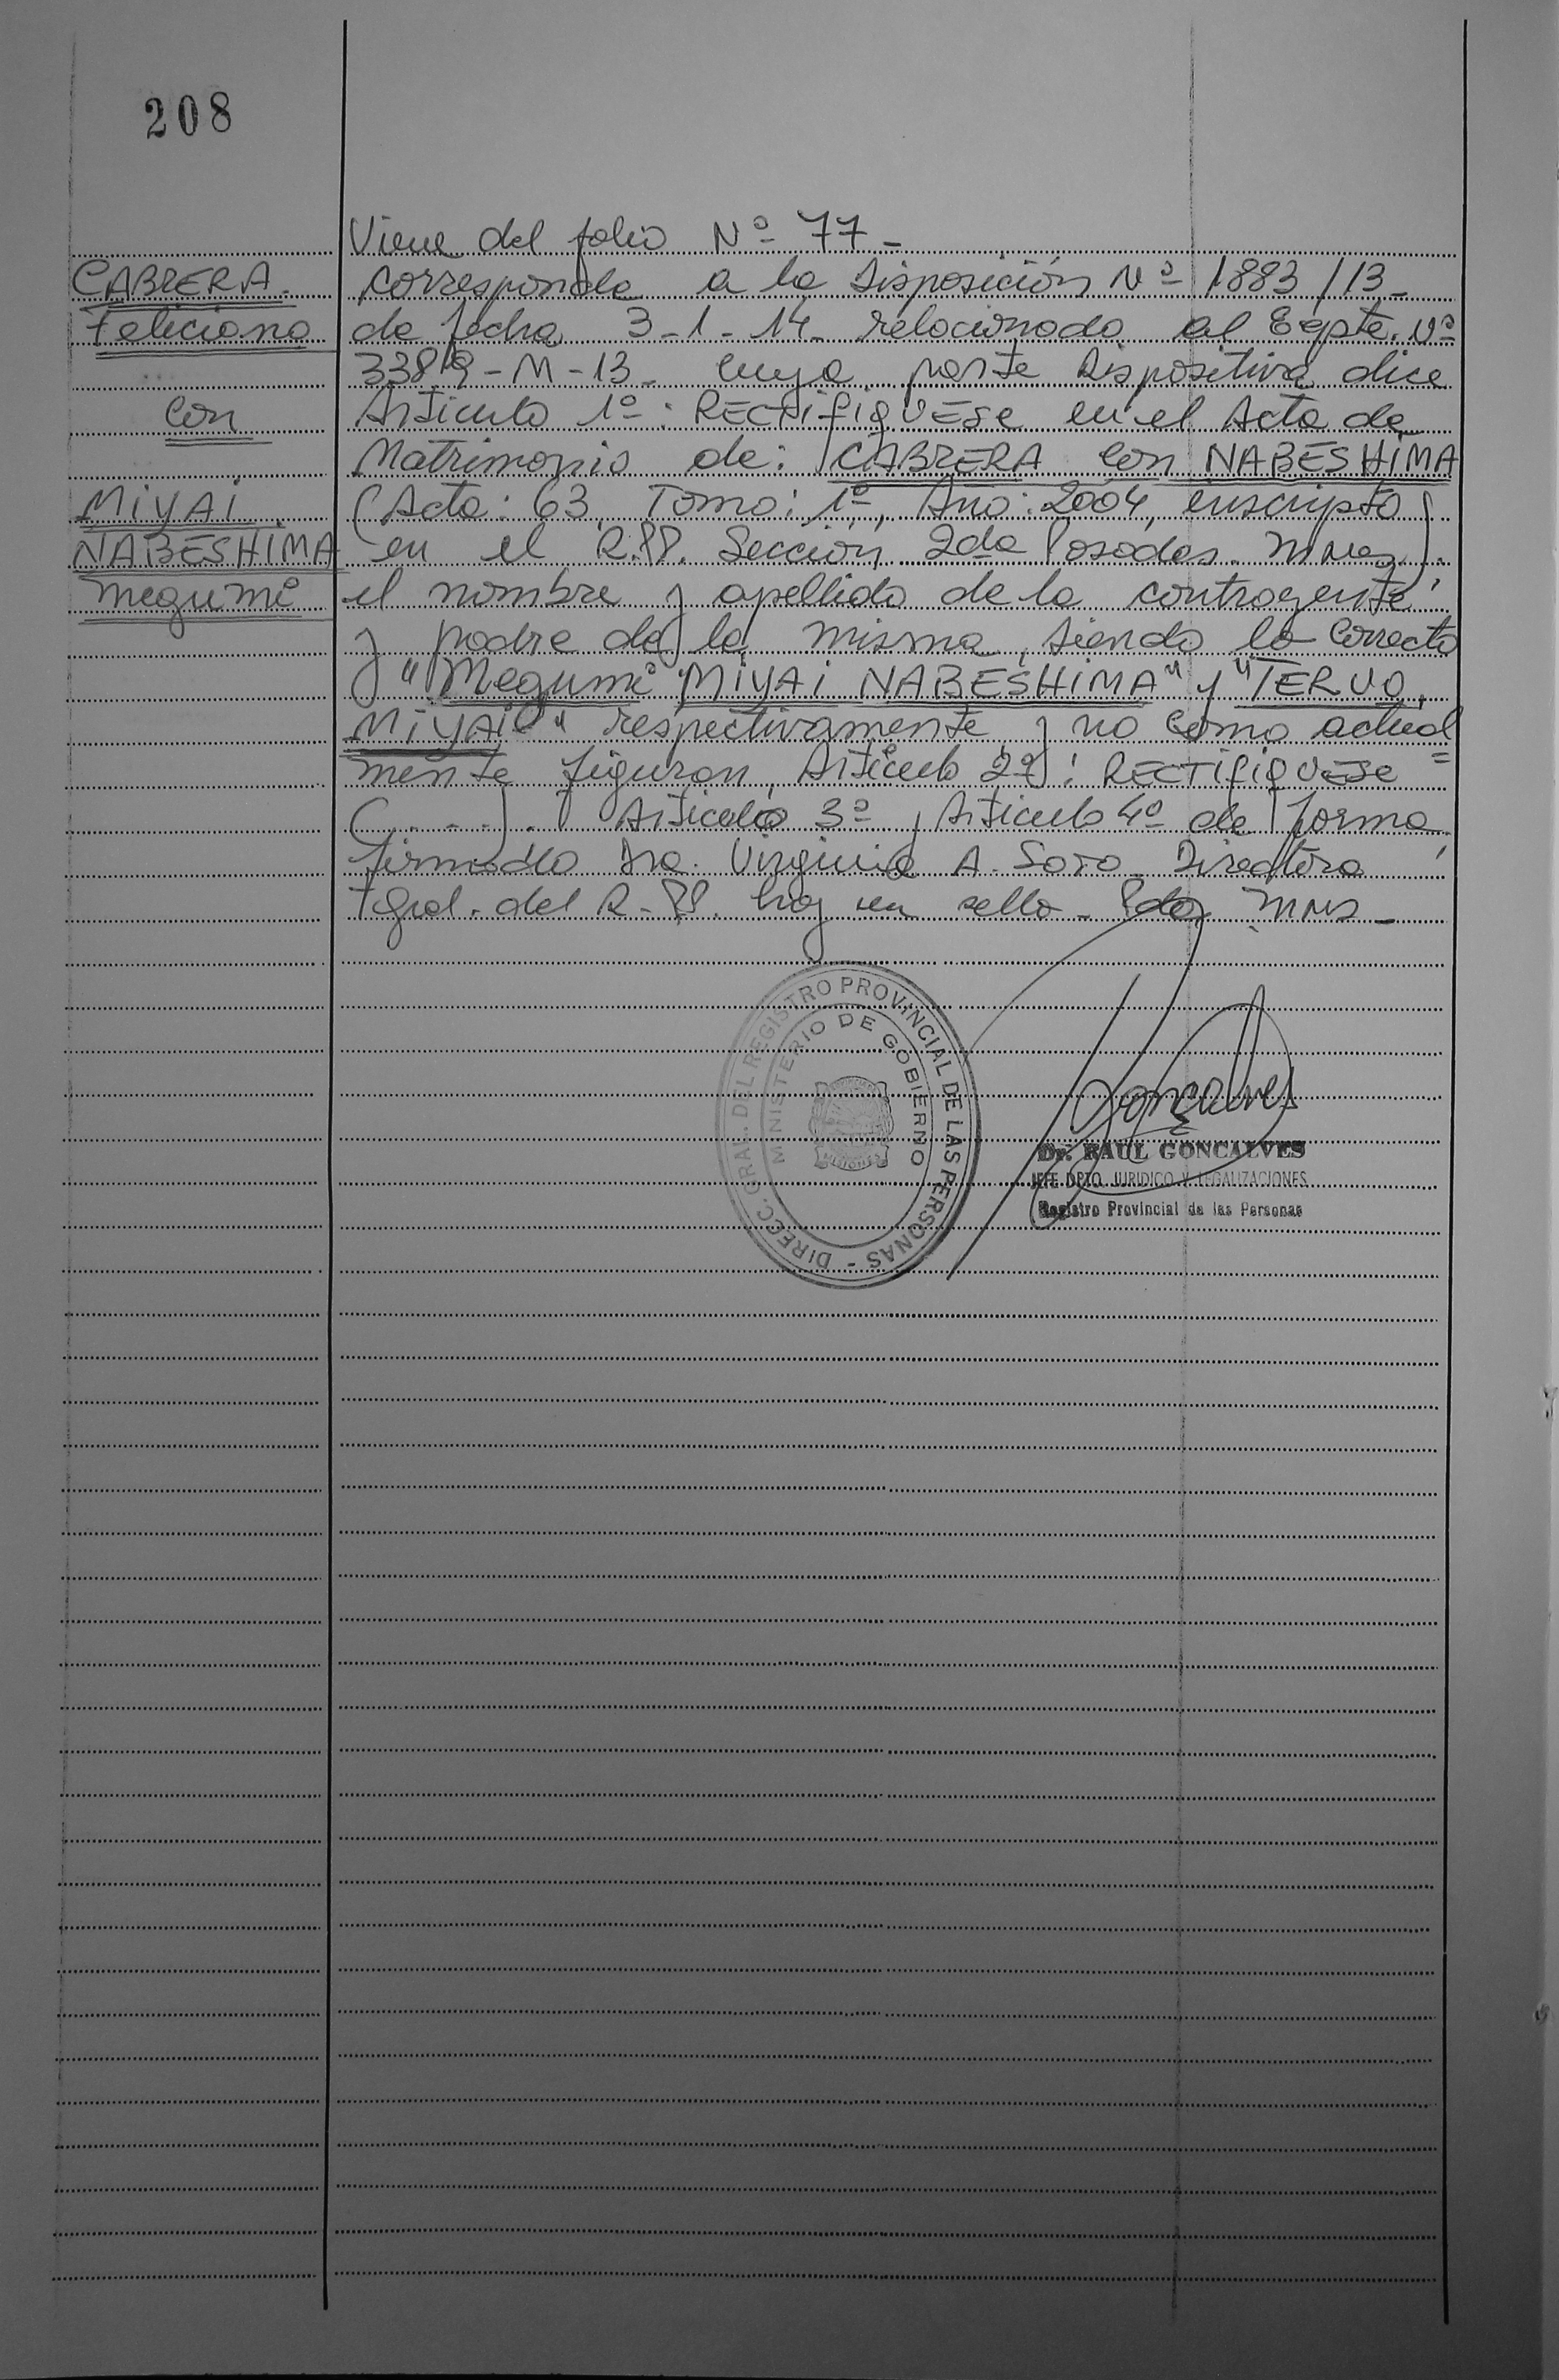 208
Viene del folio Nº 77-
CABRERA.
Feliciano
con
MiYAi
NABESHIMA
Megumi
corresponde a la Disposición Nº 1883/13-
de fecha 3-1-14- relacionado al Expte. Nº
3389-M-13- cuya parte Dispositiva dice
Articulo 1º: RECTIFIQUESE en el Acta de
Matrimonio de: CABRERA con NABESHIMA
(Acta: 63, Tomo: 1º, Año: 2004, inscripto
en el R.PP. Sección 2da Posadas. Mnes).
el nombre y apellido de la contrayente
y padre de la misma, siendo lo correcto
"Megumi MiYAi NABESHIMA" y "TERUO
MiYAi" respectivamente y no como actual
mente figuran, Articulo 2º: RECTIFIQUESE
(...). Articulo 3º, Articulo 4º de forma
firmado Dra. Virginia A. Soto Directora
Gral. del R.PP. hay un sello- Pdas Mns-
DIREC. GRAL. DEL REGISTRO PROVINCIAL DE LAS PERSONAS -
MINISTERIO DE GOBIERNO
Goncalves
Dr. RAUL GONCALVES
JEFE DPTO. JURIDICO Y LEGALIZACIONES
Registro Provincial de las Personas